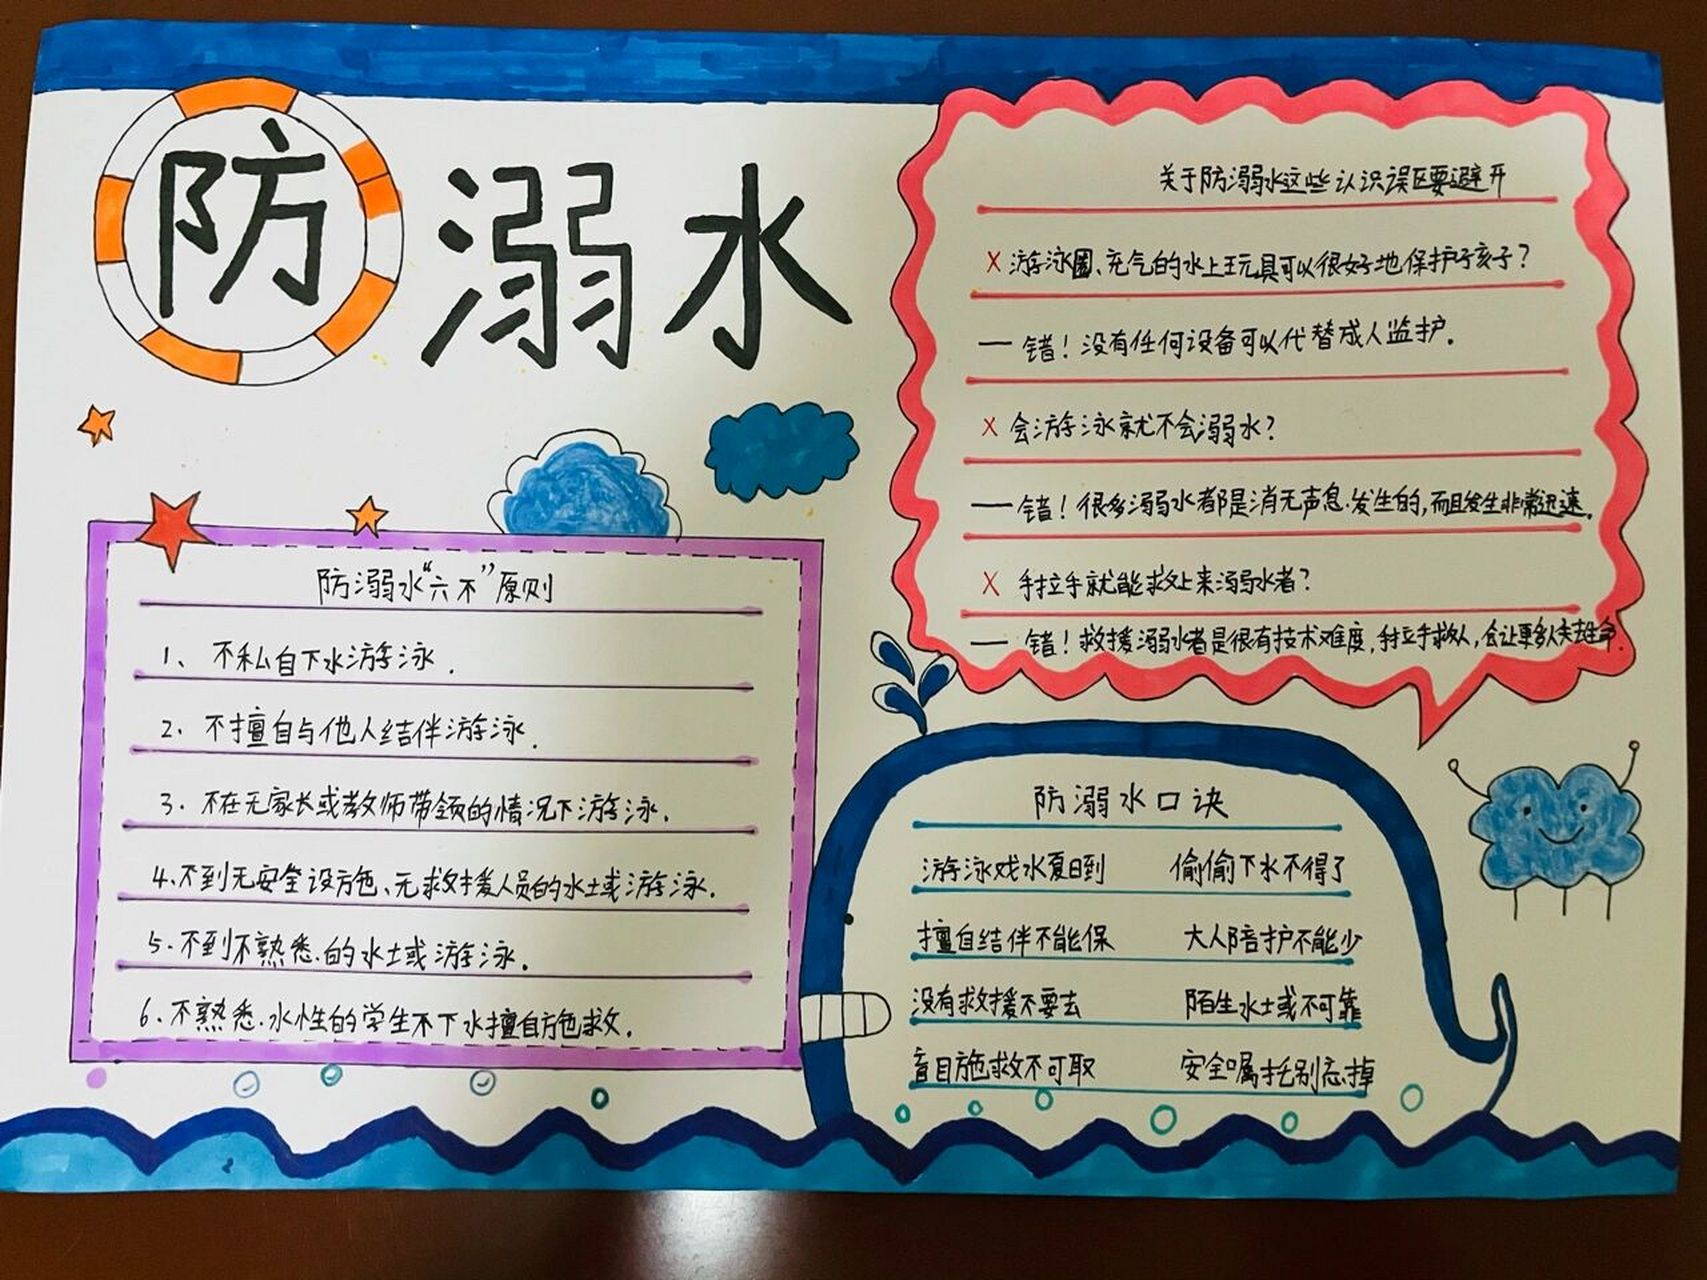 防溺水
关于防溺水这些认识误区要避开
X 游泳圈、充气的水上玩具可以很好地保护孩子？
— 错！没有任何设备可以代替成人监护。
X 会游泳就不会溺水？
— 错！很多溺水都是消无声息.发生的,而且发生非常迅速。
X 手拉手就能救上来溺水者？
— 错！救援溺水者是很有技术难度,手拉手救人,会让更多人失去生命.
防溺水“六不”原则
1、不私自下水游泳.
2. 不擅自与他人结伴游泳.
3. 不在无家长或教师带领的情况下游泳.
4.不到无安全设施、无救援人员的水土或游泳.
5.不到不熟悉.的水土或游泳.
6.不熟悉.水性的学生不下水擅自施救.
防溺水口诀
游泳戏水夏日到 偷偷下水不得了
擅自结伴不能保 大人陪护不能少
没有救援不要去 陌生水土或不可靠
盲目施救不可取 安全嘱托别忘掉